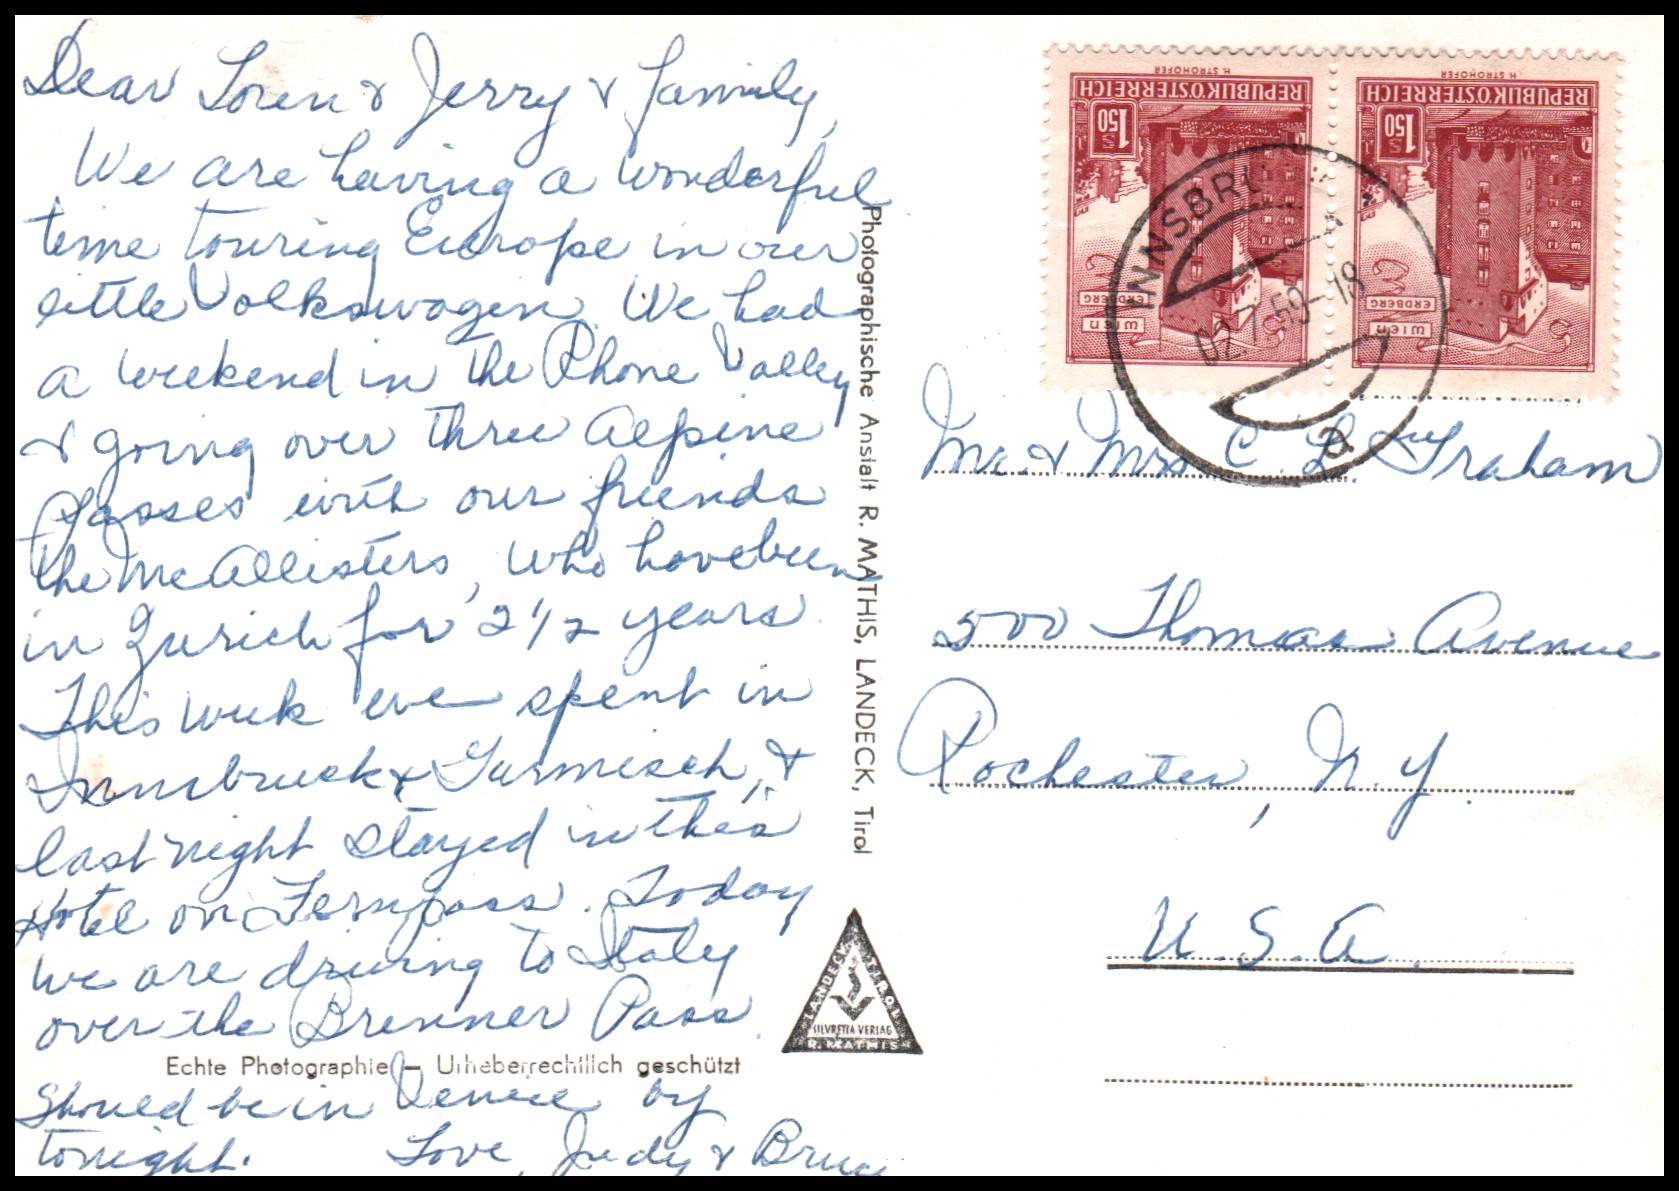 Dear Loren & Jerry & family,
We are having a wonderful
time touring Europe in our
little Volkswagen. We had
a weekend in the Rhone Valley
& going over three Alpine
Passes with our friends
the McAllisters, who have been
in Zurich for 2 1/2 years.
This week we spent in
Innsbruck & Garmisch, &
last night stayed in this
Hotel on Fernpass. Today
we are driving to Italy
over the Brenner Pass.
Echte Photographie – Urheberrechtlich geschützt
Should be in Venice by
tonight. Love, Judy & Bruce
Photographische Anstalt R. MATHIS, LANDECK, Tirol
LANDECK TIROL
SILVRETTA VERLAG
R. MATHIS
H. STROHOFER
REPUBLIK ÖSTERREICH
S 1.50
ERDBERG
WIEN
H. STROHOFER
REPUBLIK ÖSTERREICH
S 1.50
ERDBERG
WIEN
INNSBRU
02.7.59-18
a
Mr. & Mrs C. L. Graham
500 Thomas Avenue
Rochester, N.Y.
U.S.A.